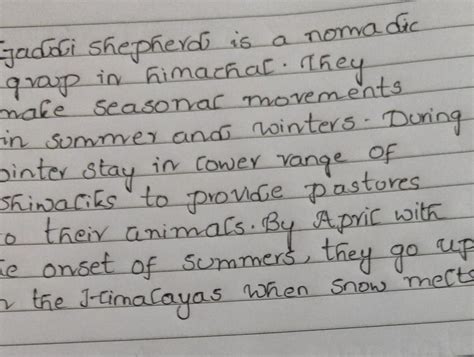 Gaddi shepherds is a nomadic
group in himachal. They
make seasonal movements
in summer and winters. During
winter stay in lower range of
shiwaliks to provide pastores
to their animals. By April with
he onset of summers, they go up
in the Himalayas when snow melts